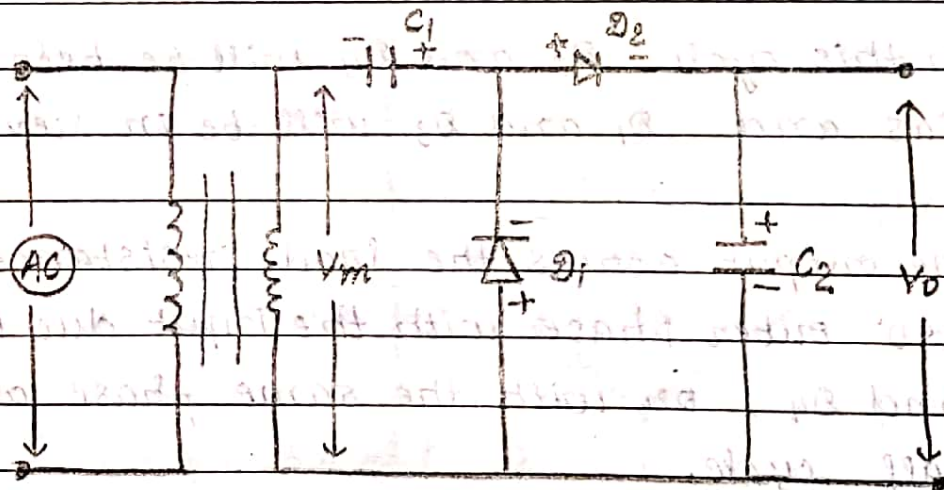 C1
D2
- +
+ -
AC
Vm
-
D1
+
+
C2
-
Vo